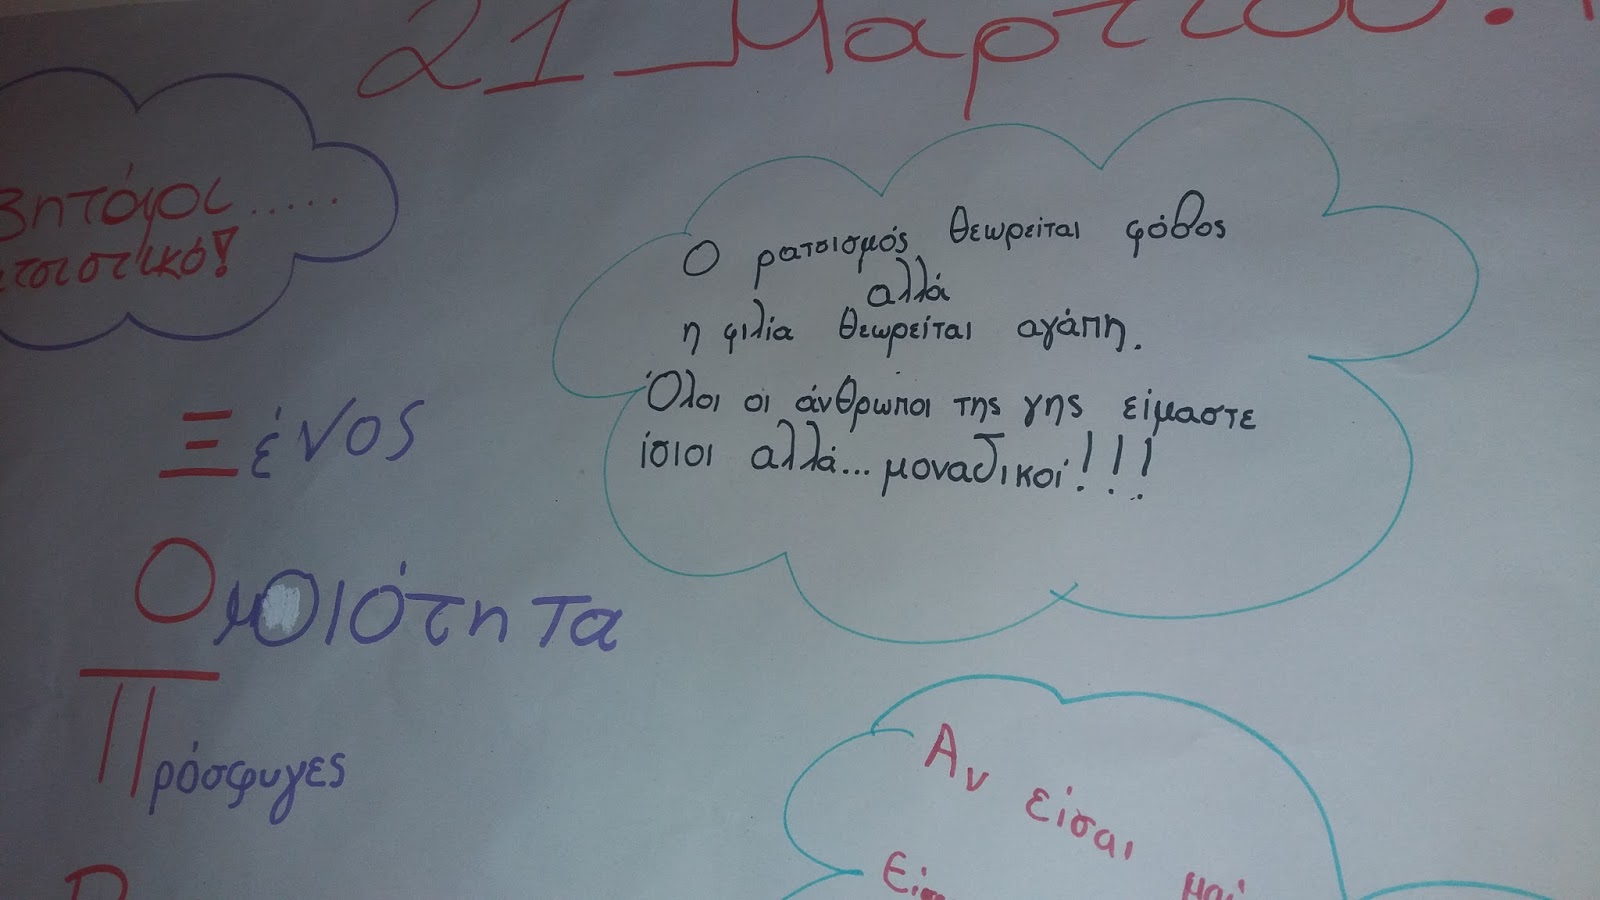 21 Μαρτίου!
βητάρι.....
τσιστικό!
Ο ρατσισμός θεωρείται φόβος
αλλά
η φιλία θεωρείται αγάπη.
Όλοι οι άνθρωποι της γης είμαστε
ίσιοι αλλά... μοναδικοί!!!
Ξένος
Ομοιότητα
Πρόσφυγες
Αν είσαι